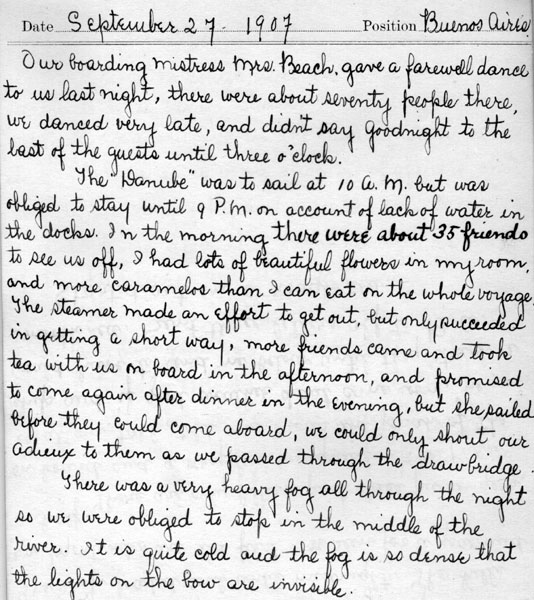 Date September 27. 1907 Position Buenos Aires.
Our boarding mistress Mrs. Beach, gave a farewell dance
to us last night, there were about seventy people there,
we danced very late, and didn't say goodnight to the
last of the guests until three o'clock.
The "Danube" was to sail at 10 A.M. but was
obliged to stay until 9 P.M. on account of lack of water in
the docks. In the morning there were about 35 friends
to see us off, I had lots of beautiful flowers in my room,
and more caramelos than I can eat on the whole voyage.
The steamer made an effort to get out, but only succeeded
in getting a short way, more friends came and took
tea with us on board in the afternoon, and promised
to come again after dinner in the evening, but she sailed
before they could come aboard, we could only shout our
adieux to them as we passed through the drawbridge.
There was a very heavy fog all through the night
so we were obliged to stop in the middle of the
river. It is quite cold and the fog is so dense that
the lights on the bow are invisible.